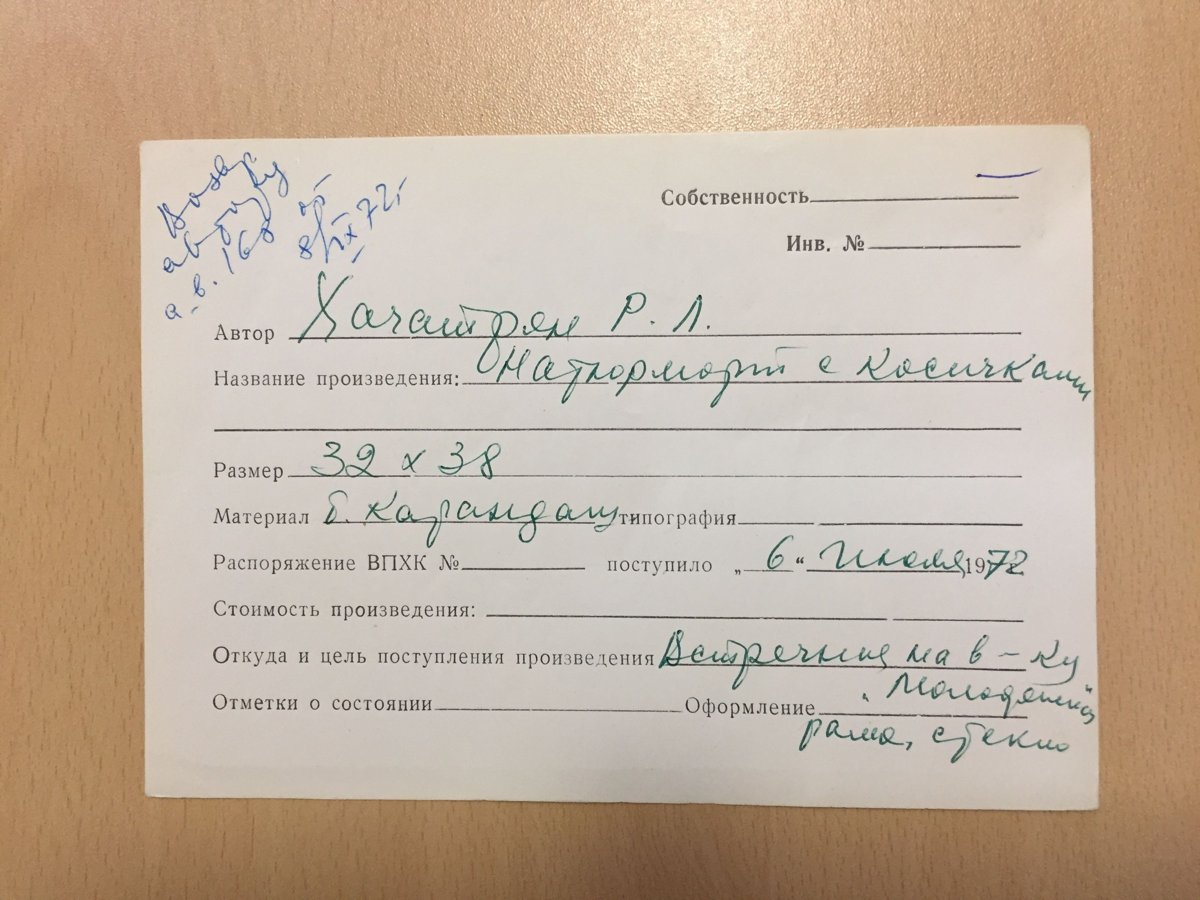 Возвр
автору
а-в. 168 от
8/IX 72 г
Собственность
Инв. №
Автор Хачатрян Р. Л.
Название произведения: Натюрморт с косичками
Размер 32 х 38
Материал б. карандаш типография
Распоряжение ВПХК № поступило „ 6 “ июля 1972
Стоимость произведения:
Откуда и цель поступления произведения на в-ку
Отметки о состоянии Оформление
рама, стекло